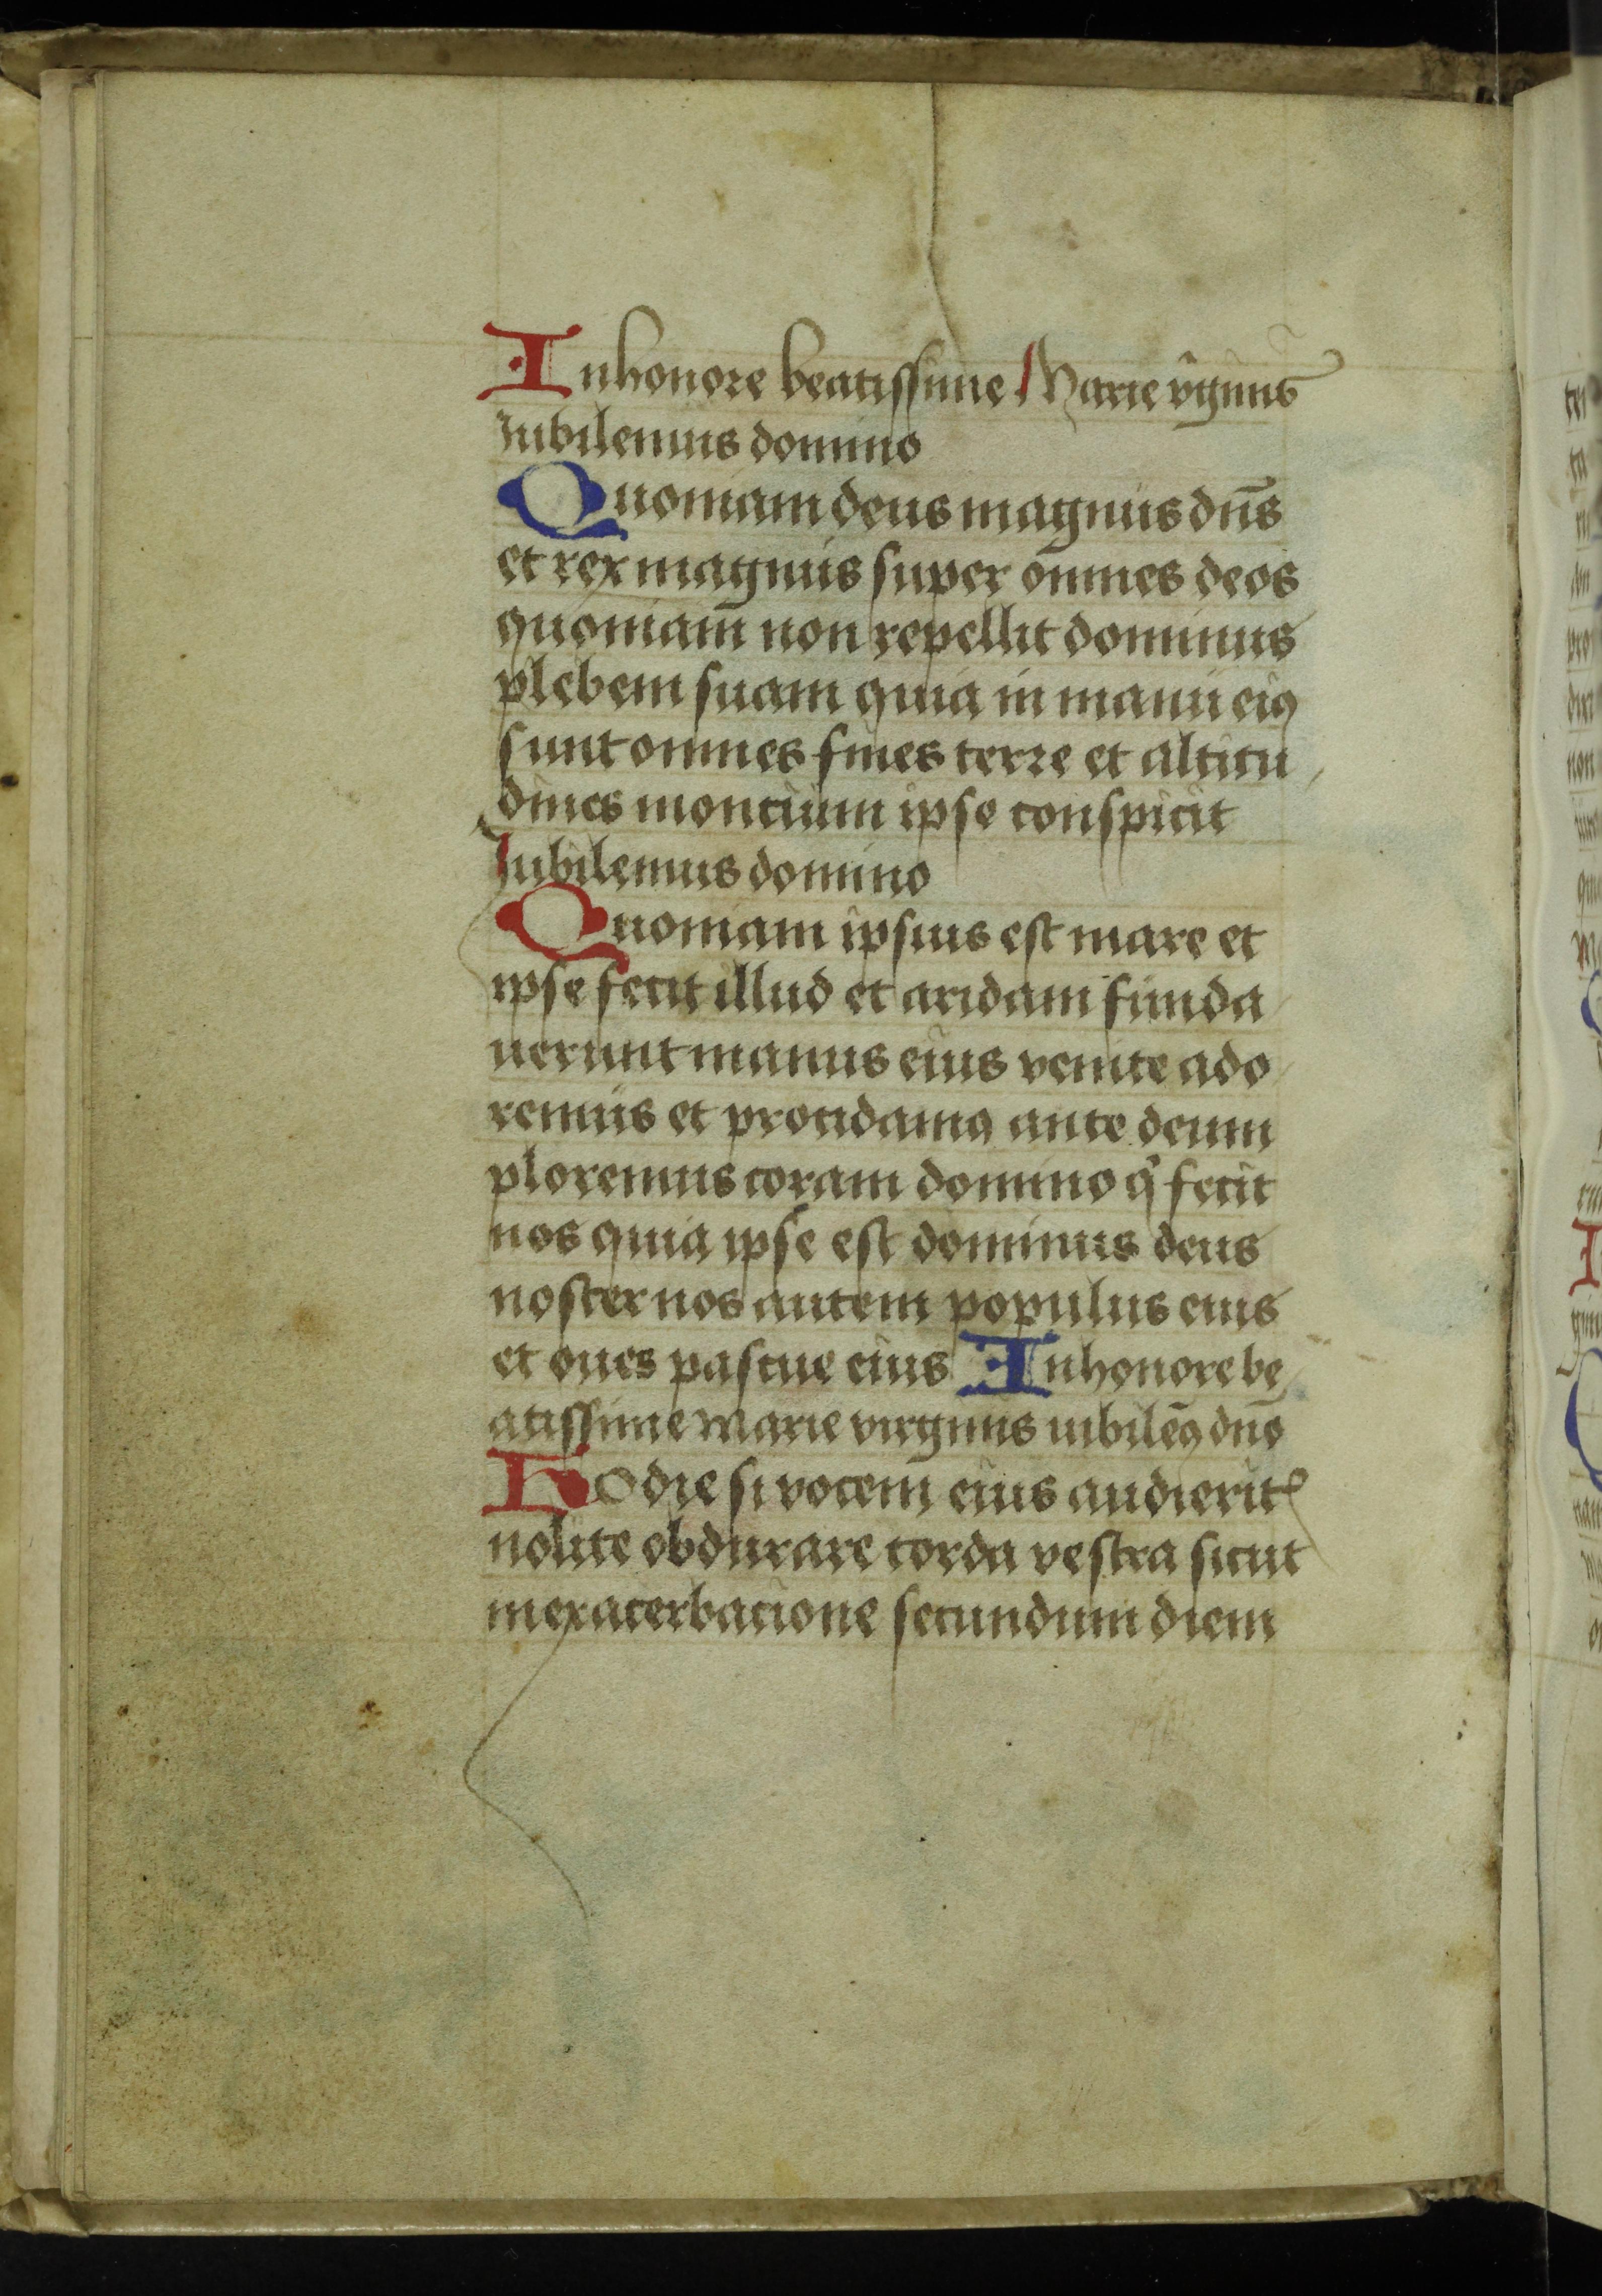 Inhonore beatissime Marie v̾ginis
Iubilemus domino
Quoniam deus magnus dn̄s
et rex magnus super om̄nes deos
quoniam non repellit dominus
plebem suam quia in manu eiꝯ
sunt omnes fines terre et altitu
dines montium ipse conspicit
Iubilemus domino
Quoniam ipsius est mare et
ipse fecit illud et aridam funda
uerunt manus eius venite ado
remus et procidamꝯ ante deum
ploremus coram domino qͥ fecit
nos quia ipse est dominus deus
noster nos autem populus eius
et oues pascue eius Inhonore be
atissime marie virginis iubilem̄ꝯ dn̄o
Hodie si vocem eius audieritꝭ
nolite obdurare corda vestra sicut
in exacerbacione secundum diem